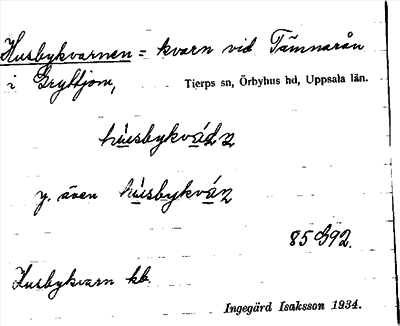 Husbykvarnen = kvarn vid Tämnarån
i Gryttjom, Tierps sn, Örbyhus hd, Uppsala län.
hùsbykváɳ
y. även hùsbykváɳ
85 G92.
Husbykvarn kb.
Ingegärd Isaksson 1934.